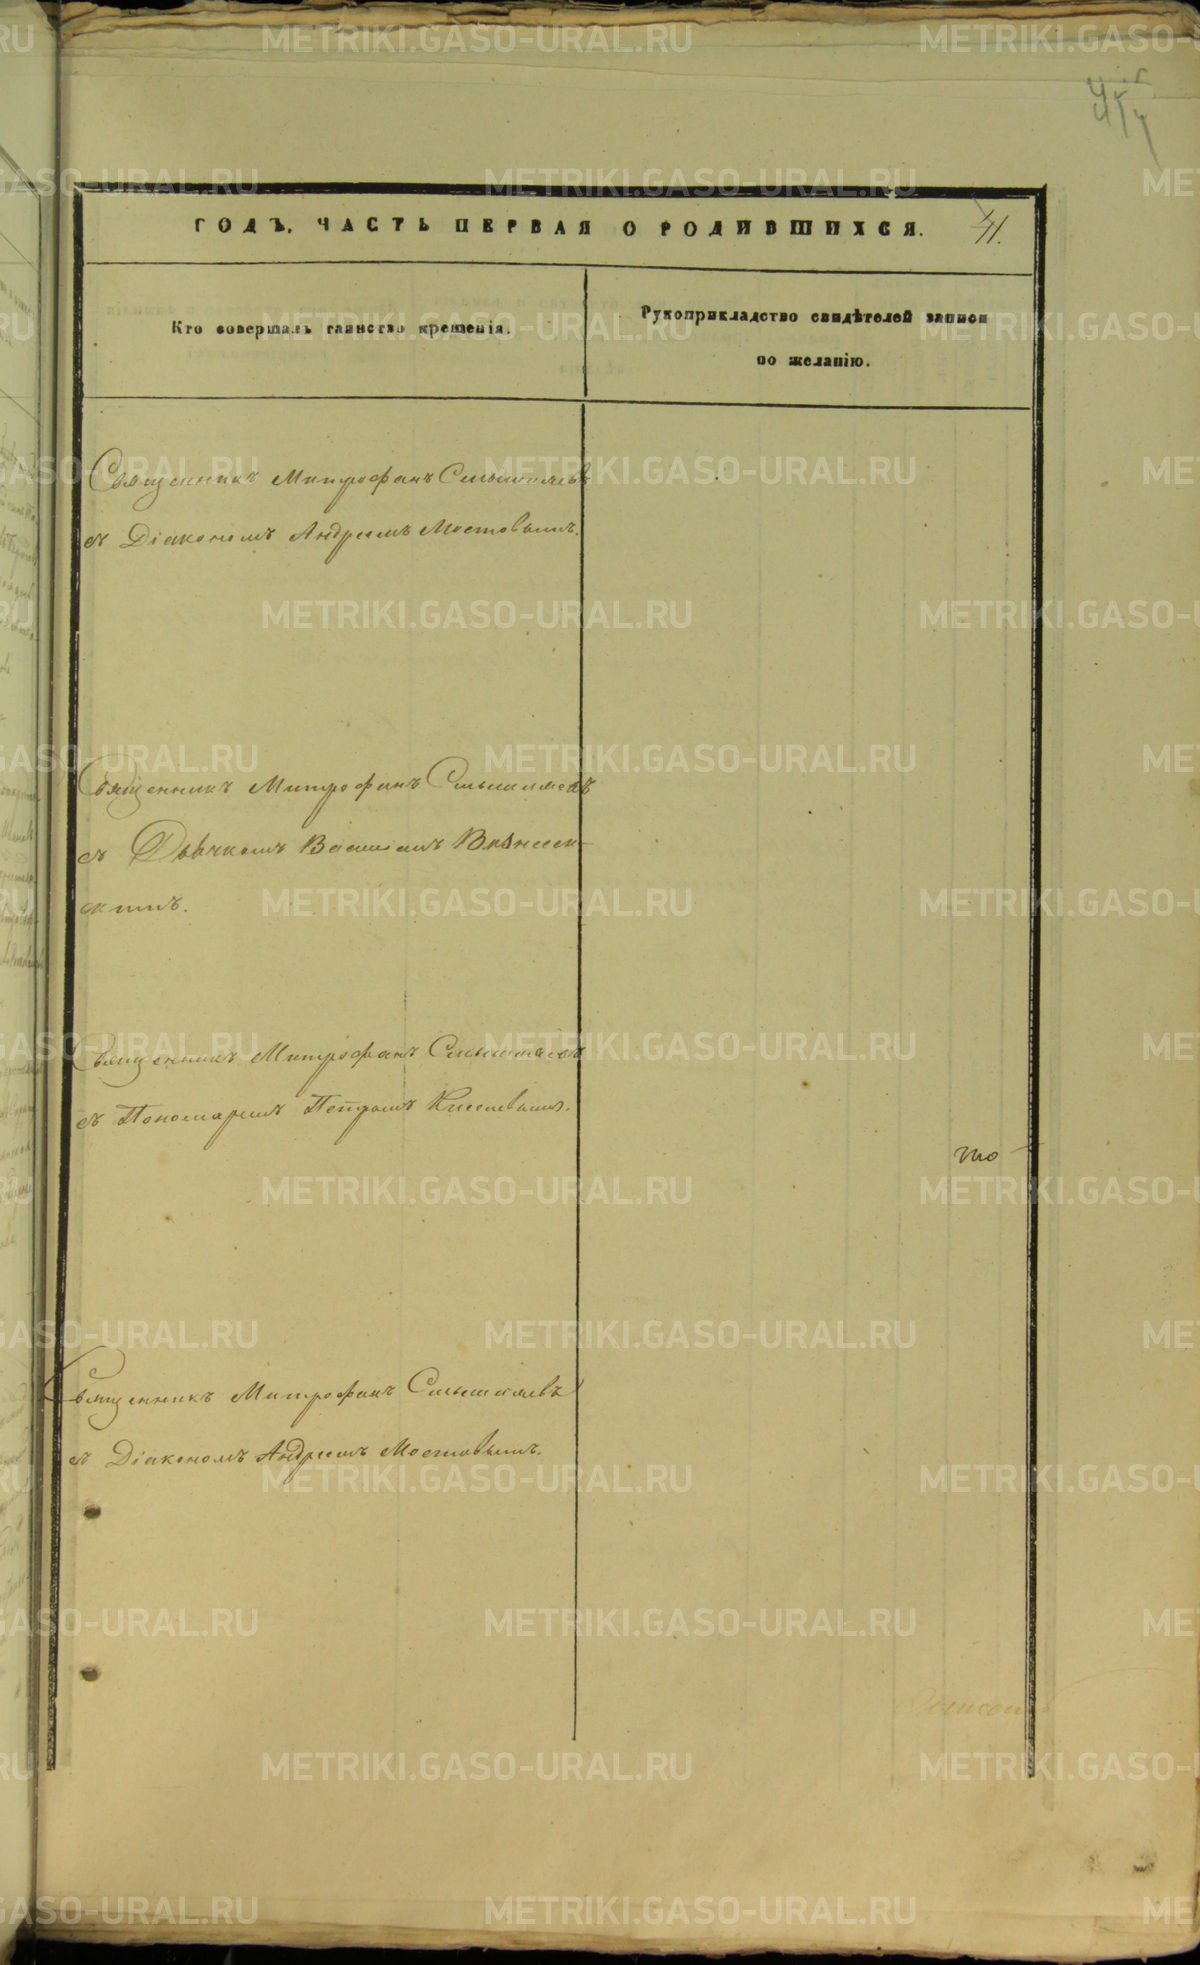 ГОДЪ. ЧАСТЬ ПЕРВАЯ О РОДИВШИХСЯ. 41.
Кто совершалъ таинство крещенія.
Рукоприкладство свидѣтелей записи
по желанію.
Священникъ Митрофанъ Смышляевъ
съ Діакономъ Андреемъ Мостовымъ.
Священникъ Митрофанъ Смышляевъ
съ Дьячкомъ Василіемъ Вознесен-
скимъ.
Священникъ Митрофанъ Смышляевъ
съ Пономаремъ Петромъ Киселевымъ.
Священникъ Митрофанъ Смышляевъ
съ Діакономъ Андреемъ Мостовымъ.
METRIKI.GASO-URAL.RU